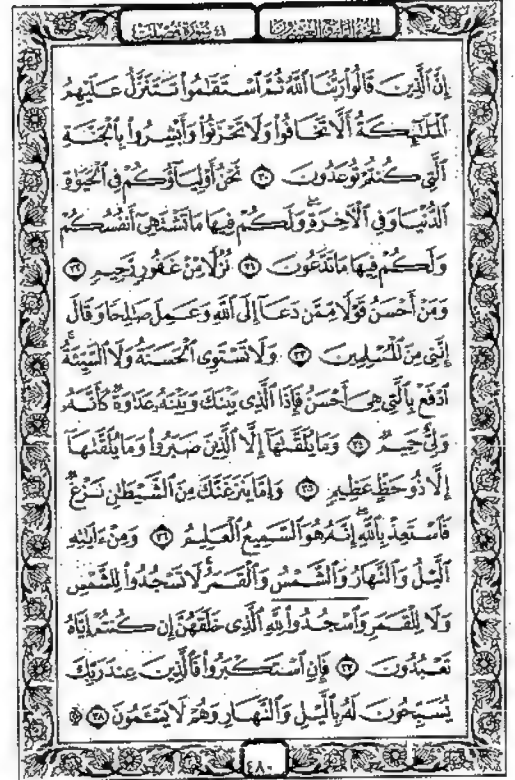 الجزء الرابع والعشرون
٤١ سورة فصلت
إِنَّ ٱلَّذِينَ قَالُوا۟ رَبُّنَا ٱللَّهُ ثُمَّ ٱسْتَقَٰمُوا۟ تَتَنَزَّلُ عَلَيْهِمُ
ٱلْمَلَٰٓئِكَةُ أَلَّا تَخَافُوا۟ وَلَا تَحْزَنُوا۟ وَأَبْشِرُوا۟ بِٱلْجَنَّةِ
ٱلَّتِى كُنتُمْ تُوعَدُونَ ٣٠ نَحْنُ أَوْلِيَآؤُكُمْ فِى ٱلْحَيَوٰةِ
ٱلدُّنْيَا وَفِى ٱلْأَخِرَةِ ۖ وَلَكُمْ فِيهَا مَا تَشْتَهِىٓ أَنفُسُكُمْ
وَلَكُمْ فِيهَا مَا تَدَّعُونَ ٣١ نُزُلًا مِّنْ غَفُورٍ رَّحِيمٍ ٣٢
وَمَنْ أَحْسَنُ قَوْلًا مِّمَّن دَعَآ إِلَى ٱللَّهِ وَعَمِلَ صَٰلِحًا وَقَالَ
إِنَّنِى مِنَ ٱلْمُسْلِمِينَ ٣٣ وَلَا تَسْتَوِى ٱلْحَسَنَةُ وَلَا ٱلسَّيِّئَةُ ۚ
ٱدْفَعْ بِٱلَّتِى هِىَ أَحْسَنُ فَإِذَا ٱلَّذِى بَيْنَكَ وَبَيْنَهُۥ عَدَٰوَةٌ كَأَنَّهُۥ
وَلِىٌّ حَمِيمٌ ٣٤ وَمَا يُلَقَّىٰهَآ إِلَّا ٱلَّذِينَ صَبَرُوا۟ وَمَا يُلَقَّىٰهَآ
إِلَّا ذُو حَظٍّ عَظِيمٍ ٣٥ وَإِمَّا يَنزَغَنَّكَ مِنَ ٱلشَّيْطَٰنِ نَزْغٌ
فَٱسْتَعِذْ بِٱللَّهِ ۖ إِنَّهُۥ هُوَ ٱلسَّمِيعُ ٱلْعَلِيمُ ٣٦ وَمِنْ ءَايَٰتِهِ
ٱلَّيْلُ وَٱلنَّهَارُ وَٱلشَّمْسُ وَٱلْقَمَرُ ۚ لَا تَسْجُدُوا۟ لِلشَّمْسِ
وَلَا لِلْقَمَرِ وَٱسْجُدُوا۟ لِلَّهِ ٱلَّذِى خَلَقَهُنَّ إِن كُنتُمْ إِيَّاهُ
تَعْبُدُونَ ٣٧ فَإِنِ ٱسْتَكْبَرُوا۟ فَٱلَّذِينَ عِندَ رَبِّكَ
يُسَبِّحُونَ لَهُۥ بِٱلَّيْلِ وَٱلنَّهَارِ وَهُمْ لَا يَسْـَٔمُونَ ۩ ٣٨
٤٨٠